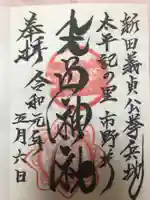 新田義貞公挙兵地
太平記の里 市野井
生品神社
令和元年
五月六日
奉拝